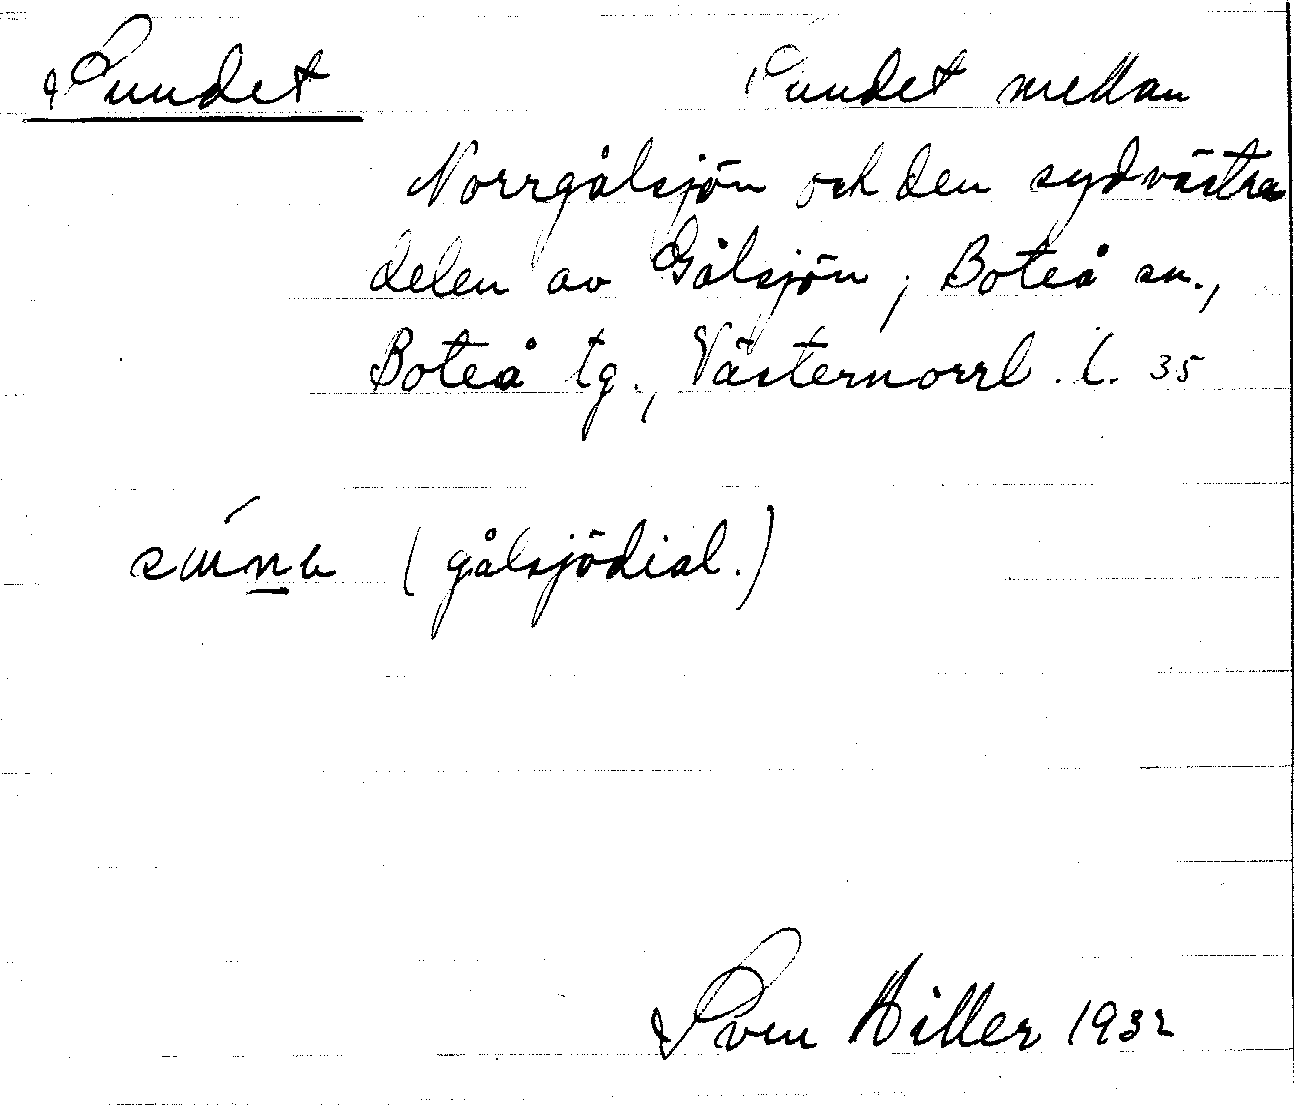 Sundet
Sundet mellan
Norrgålsjön och den sydvästra
delen av Gålsjön, Boteå sn.,
Boteå tg., Västernorrl. l. 35
(gålsjödial.)
Sven Hiller 1932